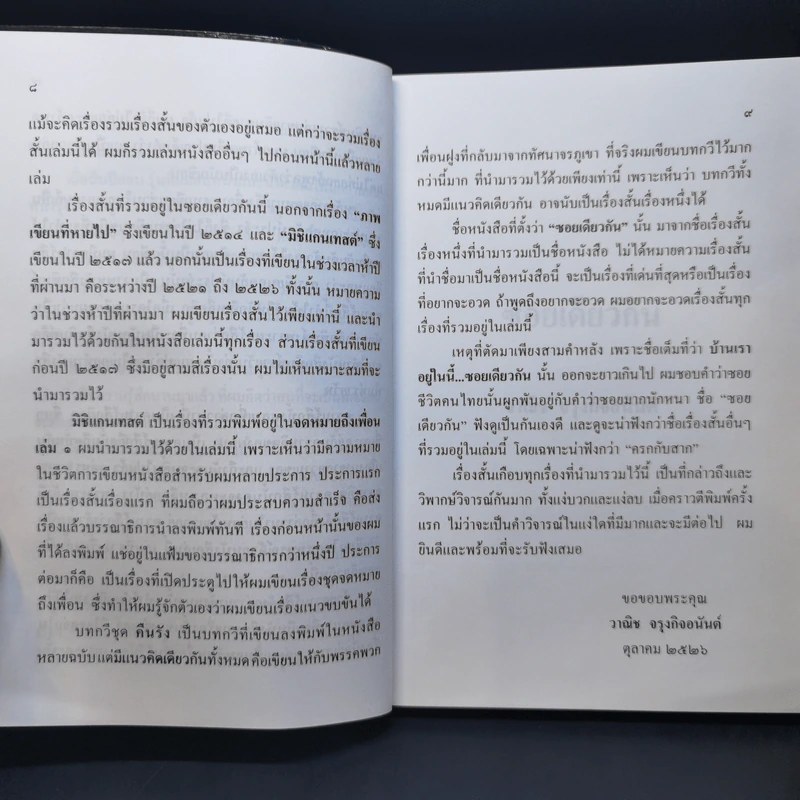 ๘
แม้จะคิดเรื่องรวมเรื่องสั้นของตัวเองอยู่เสมอ แต่กว่าจะรวมเรื่อง
สั้นเล่มนี้ได้ ผมก็รวมเล่มหนังสืออื่นๆ ไปก่อนหน้านี้แล้วหลาย
เล่ม
เรื่องสั้นที่รวมอยู่ในซอยเดียวกันนี้ นอกจากเรื่อง “ภาพ
เขียนที่หายไป” ซึ่งเขียนในปี ๒๕๑๔ และ “มิชิแกนเทสต์” ซึ่ง
เขียนในปี ๒๕๑๗ แล้ว นอกนั้นเป็นเรื่องที่เขียนในช่วงเวลาห้าปี
ที่ผ่านมา คือระหว่างปี ๒๕๒๑ ถึง ๒๕๒๖ ทั้งนั้น หมายความ
ว่าในช่วงห้าปีที่ผ่านมา ผมเขียนเรื่องสั้นไว้เพียงเท่านี้ และนำ
มารวมไว้ด้วยกันในหนังสือเล่มนี้ทุกเรื่อง ส่วนเรื่องสั้นที่เขียน
ก่อนปี ๒๕๑๗ ซึ่งมีอยู่สามสี่เรื่องนั้น ผมไม่เห็นเหมาะสมที่จะ
นำมารวมไว้
มิชิแกนเทสต์ เป็นเรื่องที่รวมพิมพ์อยู่ในจดหมายถึงเพื่อน
เล่ม ๑ ผมนำมารวมไว้ด้วยในเล่มนี้ เพราะเห็นว่ามีความหมาย
ในชีวิตการเขียนหนังสือสำหรับผมหลายประการ ประการแรก
เป็นเรื่องสั้นเรื่องแรก ที่ผมถือว่าผมประสบความสำเร็จ คือส่ง
เรื่องแล้วบรรณาธิการนำลงพิมพ์ทันที เรื่องก่อนหน้านั้นของผม
ที่ได้ลงพิมพ์ แช่อยู่ในแฟ้มของบรรณาธิการกว่าหนึ่งปี ประการ
ต่อมาก็คือ เป็นเรื่องที่เปิดประตูไปให้ผมเขียนเรื่องชุดจดหมาย
ถึงเพื่อน ซึ่งทำให้ผมรู้จักตัวเองว่าผมเขียนเรื่องแนวขบขันได้
บทกวีชุด คืนรัง เป็นบทกวีที่เขียนลงพิมพ์ในหนังสือ
หลายฉบับ แต่มีแนวคิดเดียวกันทั้งหมด คือเขียนให้กับพรรคพวก
๙
เพื่อนฝูงที่กลับมาจากทัศนาจรภูเขา ที่จริงผมเขียนบทกวีไว้มาก
กว่านี้มาก ที่นำมารวมไว้ด้วยเพียงเท่านี้ เพราะเห็นว่า บทกวีทั้ง
หมดมีแนวคิดเดียวกัน อาจนับเป็นเรื่องสั้นเรื่องหนึ่งได้
ชื่อหนังสือที่ตั้งว่า “ซอยเดียวกัน” นั้น มาจากชื่อเรื่องสั้น
เรื่องหนึ่งที่นำมารวมเป็นชื่อหนังสือ ไม่ได้หมายความเรื่องสั้น
ที่นำชื่อมาเป็นชื่อหนังสือนี้ จะเป็นเรื่องที่เด่นที่สุดหรือเป็นเรื่อง
ที่อยากจะอวด ถ้าพูดถึงอยากจะอวด ผมอยากจะอวดเรื่องสั้นทุก
เรื่องที่รวมอยู่ในเล่มนี้
เหตุที่ตัดมาเพียงสามคำหลัง เพราะชื่อเต็มที่ว่า บ้านเรา
อยู่ในนี้...ซอยเดียวกัน นั้น ออกจะยาวเกินไป ผมชอบคำว่าซอย
ชีวิตคนไทยนั้นผูกพันอยู่กับคำว่าซอยมากนักหนา ชื่อ “ซอย
เดียวกัน” ฟังดูเป็นกันเองดี และดูจะน่าฟังกว่าชื่อเรื่องสั้นอื่นๆ
ที่รวมอยู่ในเล่มนี้ โดยเฉพาะน่าฟังกว่า “ครกกับสาก”
เรื่องสั้นเกือบทุกเรื่องที่นำมารวมไว้นี้ เป็นที่กล่าวถึงและ
วิพากษ์วิจารณ์กันมาก ทั้งแง่บวกและแง่ลบ เมื่อคราวตีพิมพ์ครั้ง
แรก ไม่ว่าจะเป็นคำวิจารณ์ในแง่ใดที่มีมากและจะมีต่อไป ผม
ยินดีและพร้อมที่จะรับฟังเสมอ
ขอขอบพระคุณ
วาณิช จรุงกิจอนันต์
ตุลาคม ๒๕๒๖